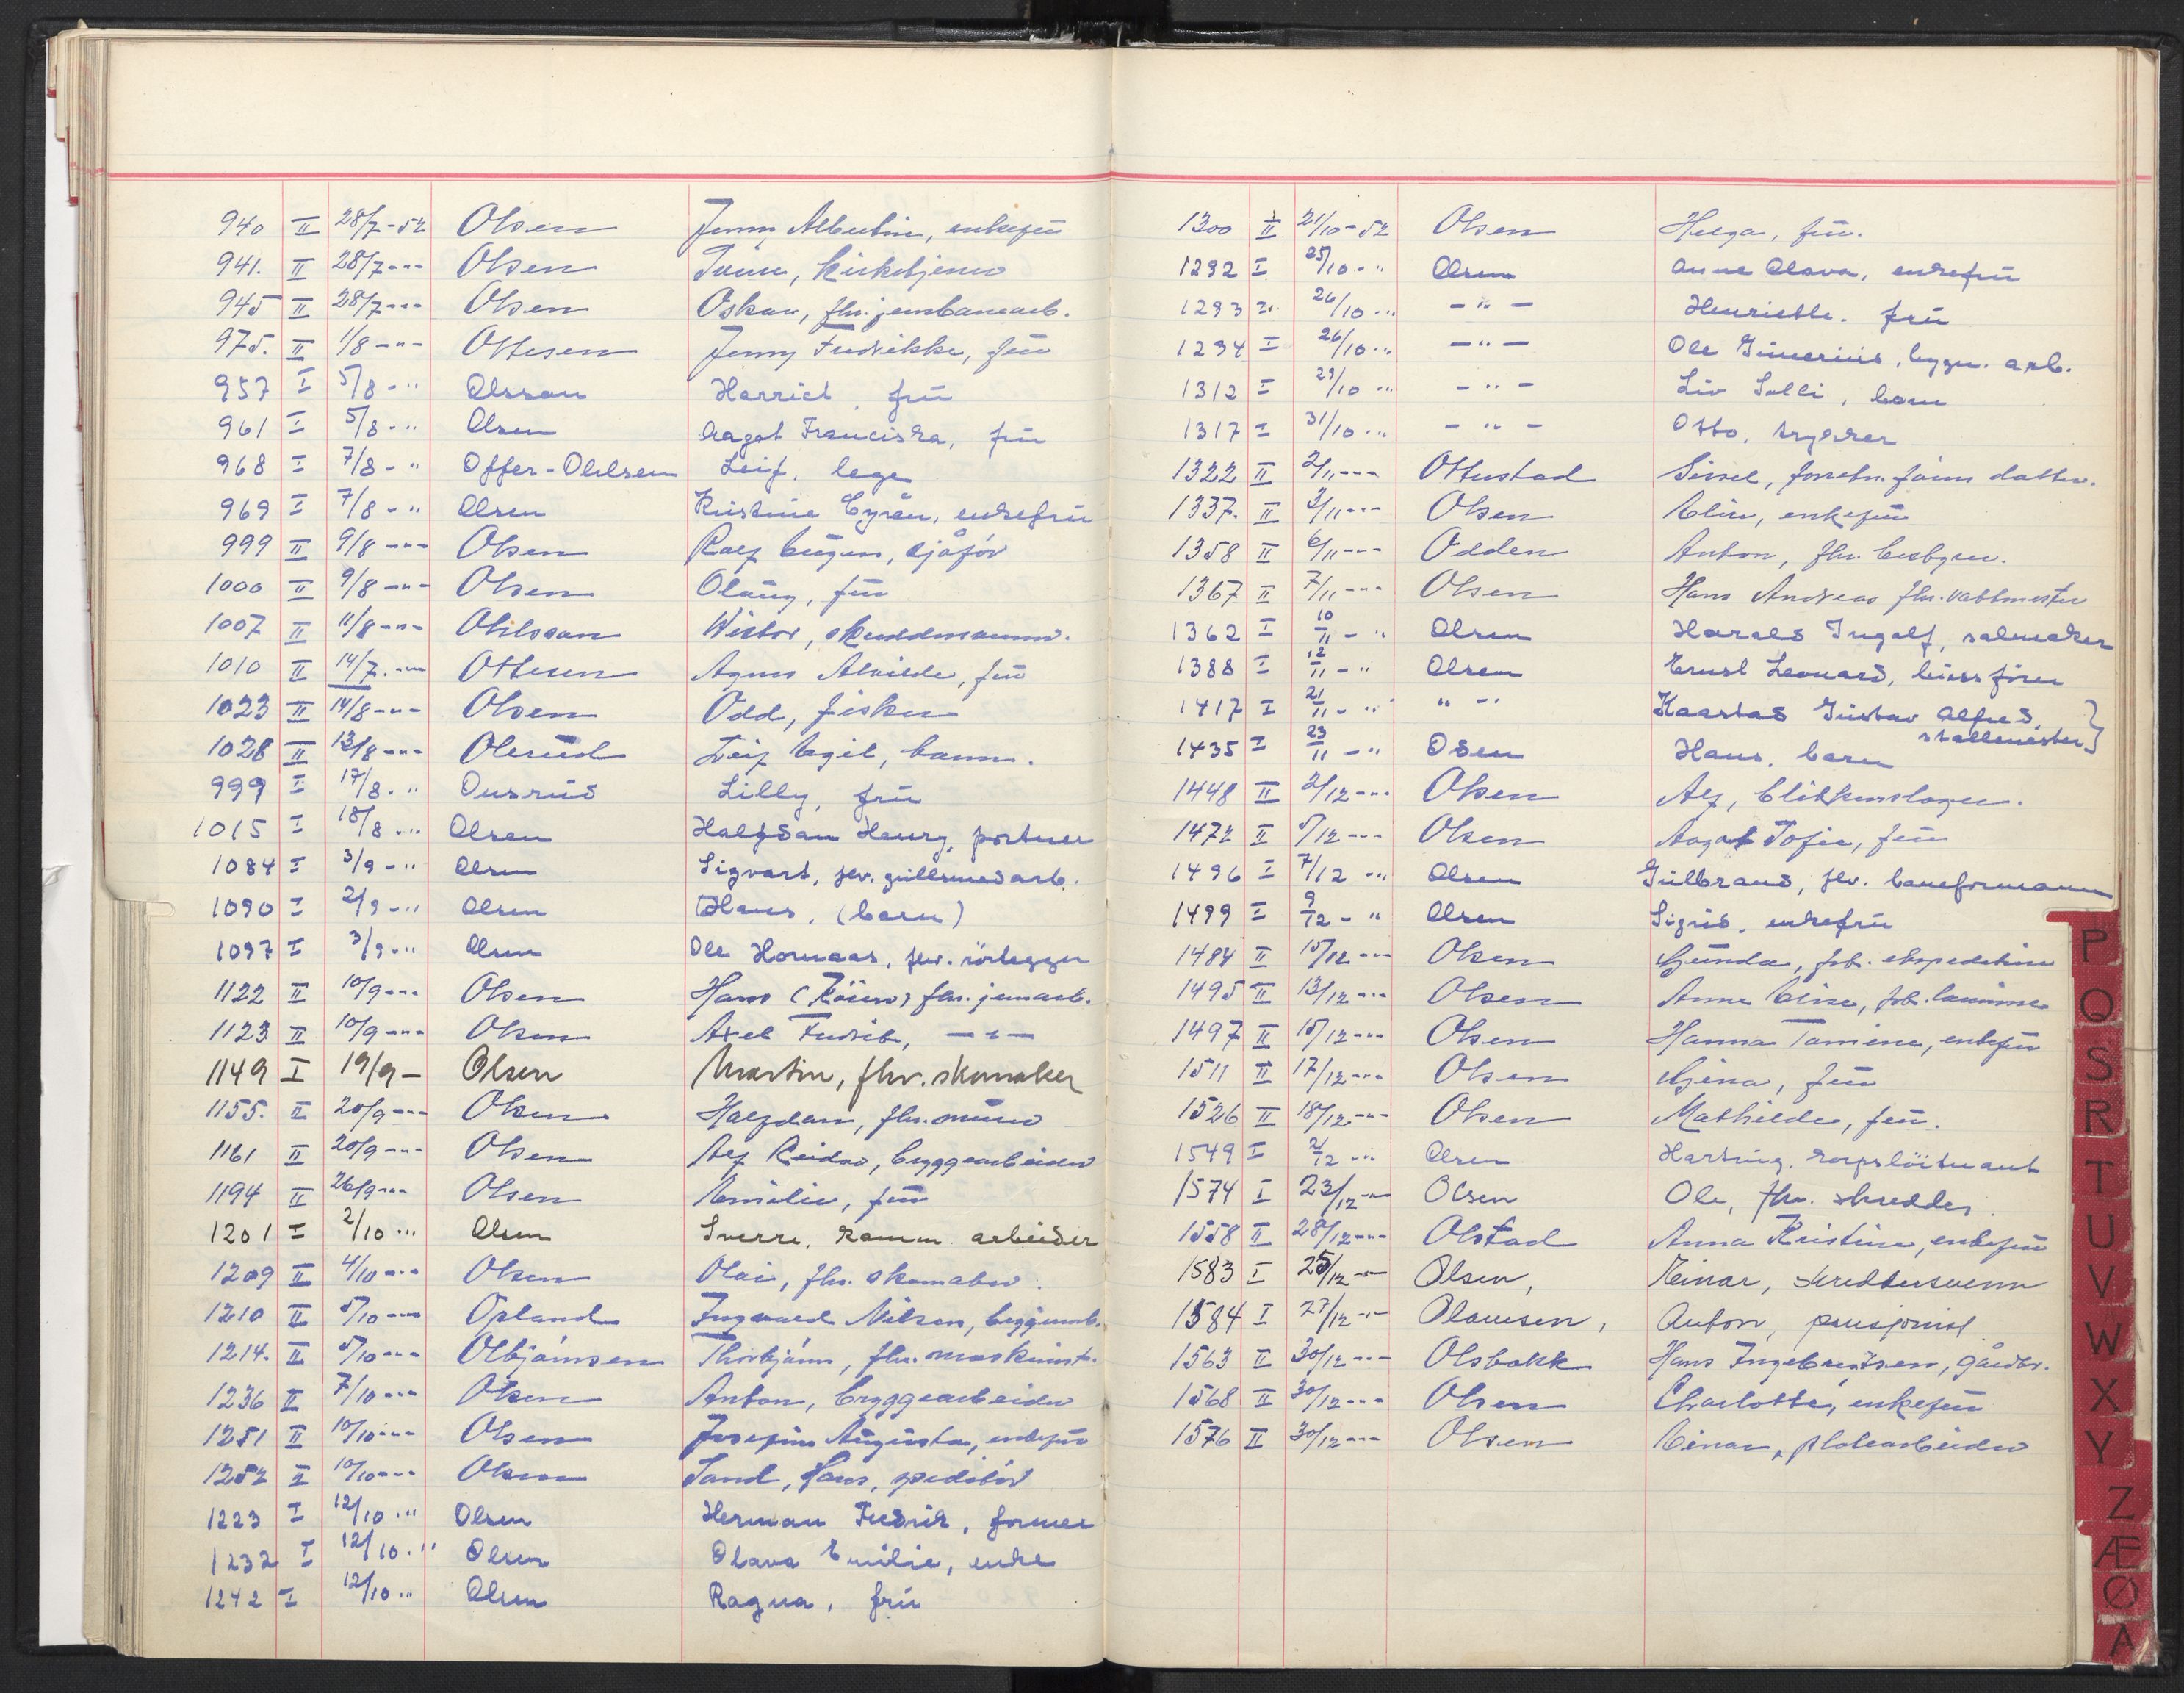 940 II 28/7-52 Olsen Jenny Albertine, enkefrü
941. II 28/7-"- Olsen kirketjener
945 II 28/7-"- Olsen Oskar, fhv. jernbanearb.
975. II 1/8-"- Ottesen Jenny Fredrikke, frü
957 I 5/8-" Olsson Harriet, frü
961 I 5/8-" Olsen Aagot Franciska, frü
968 I 7/8-" Offer-Ohlsen Leif, lege
969 I 7/8-" Olsen Kristine Cyrén, enkefrü
999 II 9/8-"- Olsen Rolf Eugen, sjåfør
1000 II 9/8-"- Olsen Olaug, frü
1007 II 11/8-"- Ohlsson
1010 II 14/7.-"- Ottesen Agnes Alvilde, frü
1023 II 14/8-"- Olsen Odd, fisker
1028 II 13/8-"- Olerud Leif Egil, barn.
999 I 17/8-" Ousrüd Lilly, frü
1015 I 18/8-" Olsen Halfdan Henry, portner
1084 I 3/9-" Olsen Sigvart, fhv. güllsmedarb.
1090 I 2/9-" Olsen Hans, (barn)
1097 I 3/9-" Olsen Ole Hornaas, fhv. rörlegger
1122 II 10/9-"- Olsen Hans fhv. jernarb.
1123 II 10/9-"- Olsen Axel Fredrik, -"-
1149 I 19/9- Olsen Martin, fhv. skomaker
1155. II 20/9-"- Olsen Halfdan, fhv. murer
1161 II 20/9-"- Olsen Alf Reidar, bryggearbeider
1194 II 26/9-"- Olsen Emilie, frü
1201 I 2/10-" Olsen Sverre, komm. arbeider
1209 II 4/10-"- Olsen Olai, fhv. skomaker.
1210 II 5/10-"- Opland Ingvald Nilsen, byggearb.
1214. II 5/10-"- Olbjørnsen Thorbjørn, fhv. maskinist.
1236 II 7/10-"- Olsen Anton, bryggearbeider
1251 II 10/10-"- Olsen Josefine Augusta, enkefrü
1252 II 10/10-"- Olsen Sand, Hans, speditør
1223 I 12/10-" Olsen Herman Fredrik, former
1232 I 12/10-" Olsen Olava Emilie, enke
1242 I 12/10-" Olsen Ragna, frü
1300 II 21/10-52 Olsen Helga, frü.
1292 I 25/10-" Olsen Anne Olava, enkefrü
1293 26/10-" -"- Henriette. frü
1294 I 26/10-" -"- Ole Günerius, bygn. arb.
1312 I 29/10-" -"- Liv Solli, barn
1317 I 31/10-" -"- Otto, trykker
1322 II 2/11-"- Ottestad Sissel, datter.
1337. II 3/11-"- Olsen Eline, enkefrü
1358 II 6/11-"- Odden Anton, fhv.
1367 II 7/11-"- Olsen Hans Andreas fhv. vaktmester
1362 I 10/11-" Olsen Harald Ingolf, salmaker
1388 I 12/11-" Olsen Ernst Leonard,
1417 I 21/11-" "-" Kaastad Güstav Alfred, stallmester }
1435 I 23/11-" Osen Hans, barn
1448 II 2/12-"- Olsen Alf, blikkenslager.
1472 II 5/12-"- Olsen Aagot Sofie, frü
1496 I 7/12-" Olsen Gülbrand, fhv. baneformann
1499 I 9/12-" Olsen Sigrid, enkefrü
1484 II 10/12-"- Olsen Gunda, frk. ekspeditrise
1495 II 13/12-"- Olsen Anna Elise, frk. lærerinne
1497 II 15/12-"- Olsen Hanna Tomine, enkefrü
1511 II 17/12-"- Olsen Gina, frü
1526 II 18/12-"- Olsen Mathilde, frü.
1549 I 21/12-" Olsen Hartvig, korpslöitnant
1574 I 23/12-" Olsen Ole, fhv. skredder.
1558 II 28/12-"- Olstad Anna Kristine, enkefrü
1583 I 25/12-" Olsen, Einar, skreddersvenn
1584 I 27/12-" Olaussen, Anton, pensjonist
1563 II 30/12-"- Olsbakk Hans Ingebretsen, gårdbr.
1568 II 30/12-"- Olsen Charlotte, enkefrü
1576 II 30/12-"- Olsen Einar, platearbeider
P
Q
S
R
T
U
V
W
X
Y
Z
Æ
Ø
A